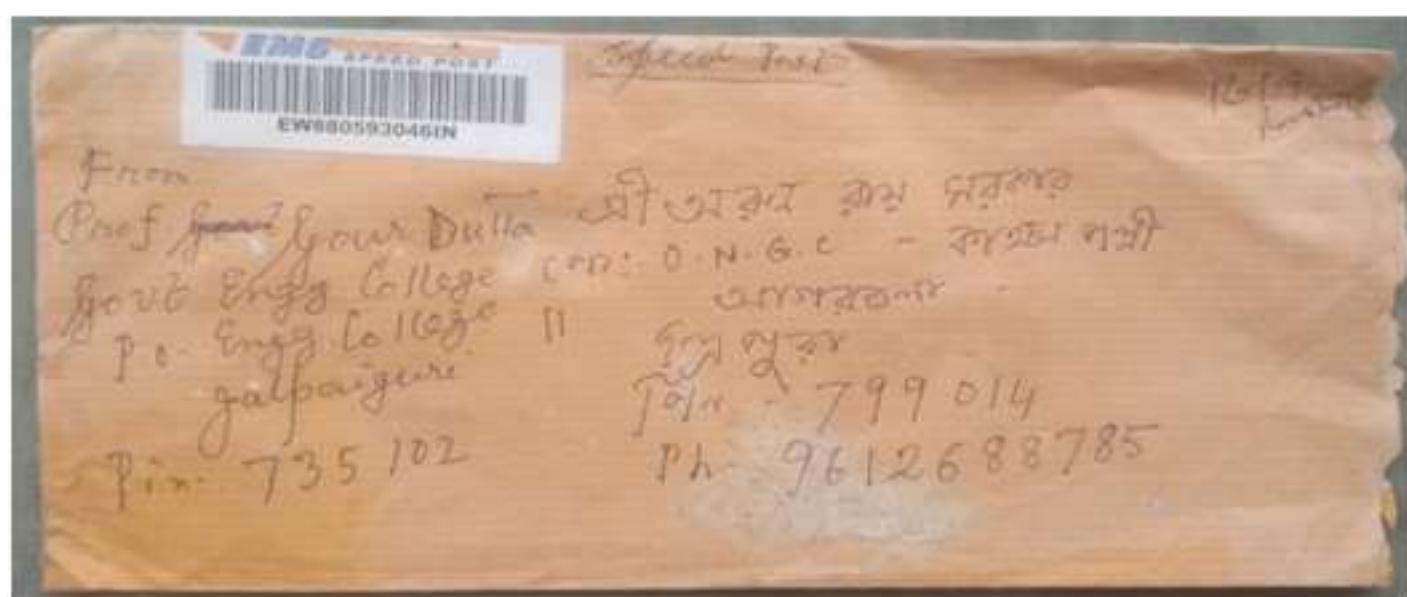 EMS SPEED POST
EW880593046IN
Speed Post
From
Prof Gour Dutta
Govt Engg College
Po- Engg College
Jalpaiguri
Pin- 735102
শ্রী অরুন রায় সরকার
পো:- O.N.G.C - কাঞ্চন পল্লী
আগরতলা -
ত্রিপুরা
পিন - 799014
Ph- 9612688785